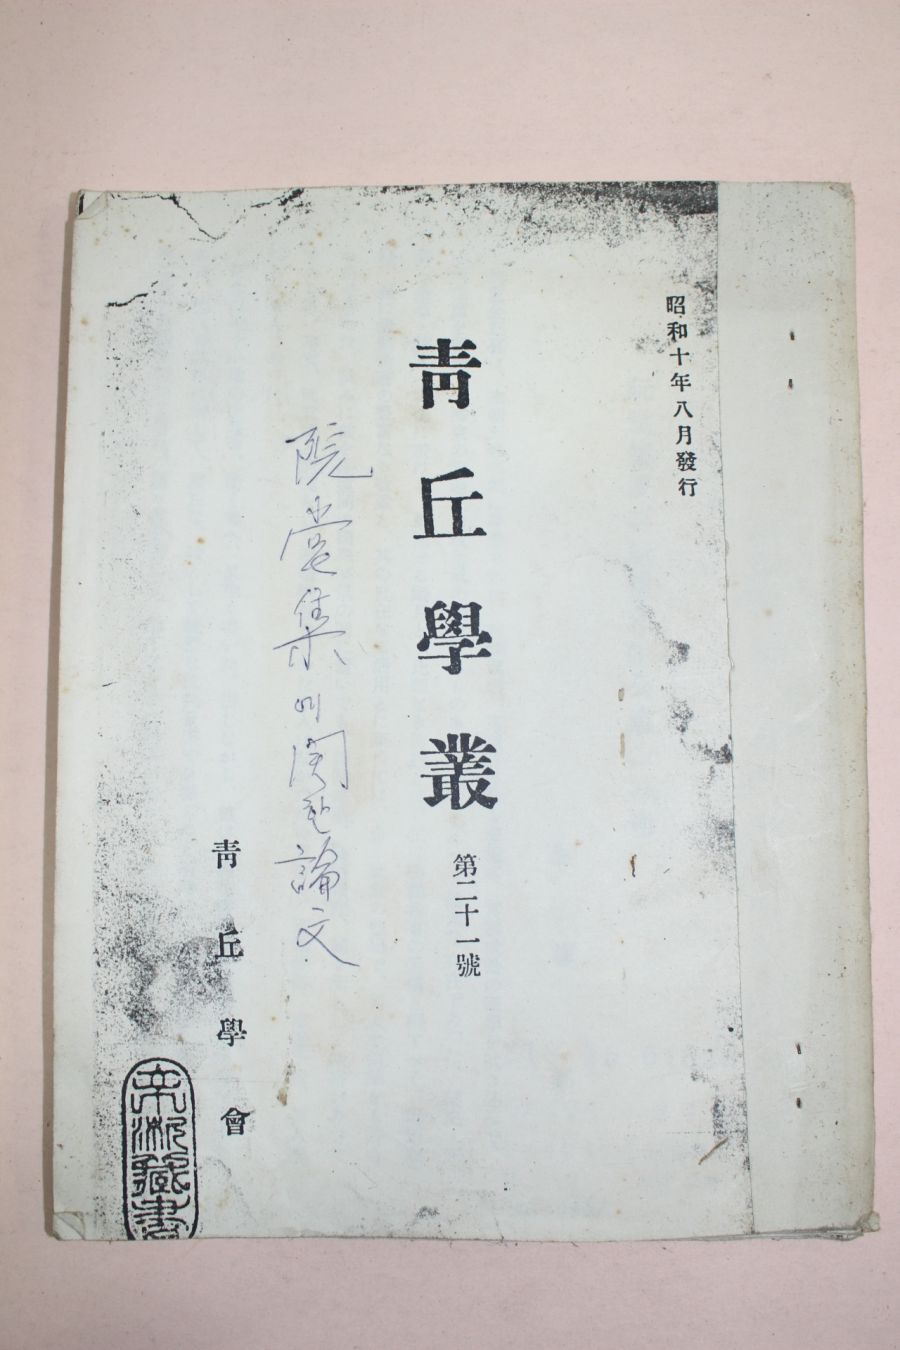 昭和十年八月發行
靑丘學叢
第二十一號
阮堂集에関한論文
靑丘學會
藏書